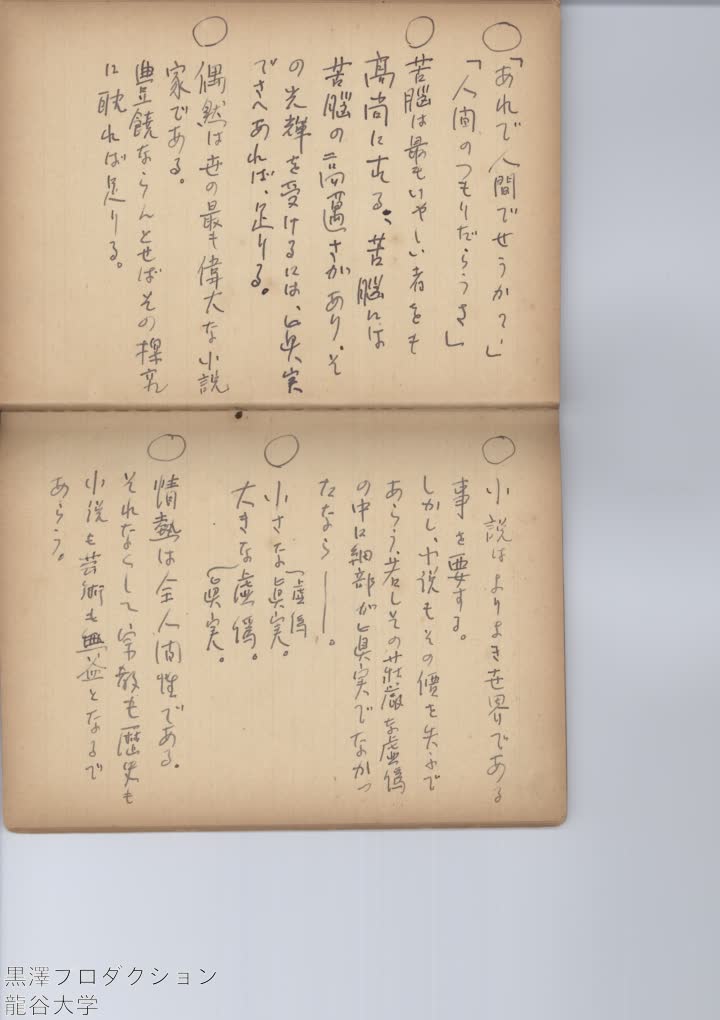 「あれで人間でせうか?」
「人間のつもりだらうさ」
苦脳は最もいやしい者をも
高尚にする、苦脳には
苦脳の高邁さがあり、そ
の光輝を受けるには、眞実
でさへあれば、足りる。
偶然は世の最も偉大な小説
家である。
豊饒ならんとせばその探究
に耽れば足りる。
小説はよりよき世界である
事を要する。
しかし、小説もその價を失ふで
あらう、若しその荘厳な虚偽
の中に細部が眞実でなかつ
たなら――。
小さな眞実。(虚偽
大きな虚偽。(眞実。
情熱は全人间性である。
それなくして、宗教も歴史も
小説も芸術も無益となるで
あらう。
黒澤プロダクション
龍谷大学